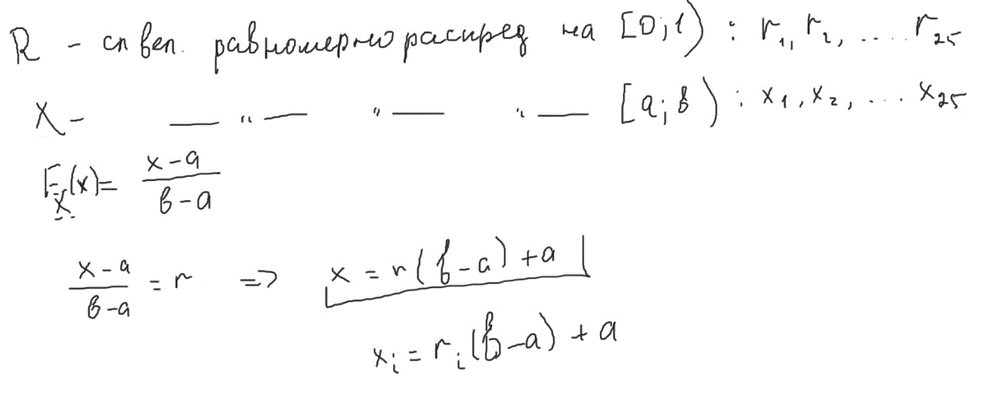 R - сл вел. равномерно распред на [0;1) : r₁, r₂, .... r₂₅
X - —〃— 〃— 〃— [a; в) : x₁, x₂, ... x₂₅
F_X(x) = (x-a)/(в-a)
(x-a)/(в-a) = r => x = r(b-a)+a
xᵢ = rᵢ(b-a) + a